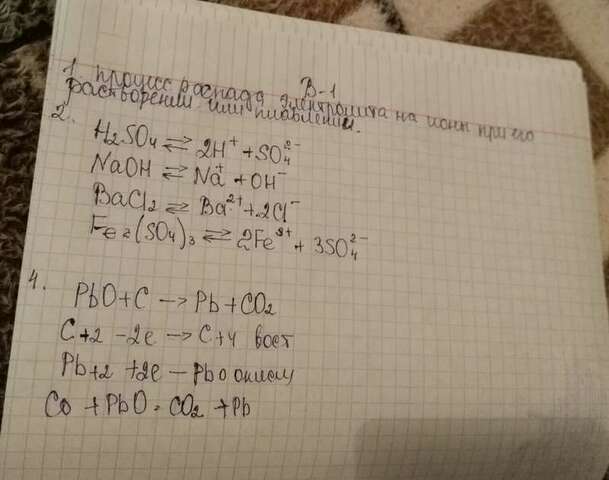 В-1
1. процесс распада электролита на ионы при его
растворении или плавлении.
2.
H₂SO₄ ⇄ 2H⁺ + SO₄²⁻
NaOH ⇄ Na⁺ + OH⁻
BaCl₂ ⇄ Ba²⁺ + 2Cl⁻
Fe₂(SO₄)₃ ⇄ 2Fe³⁺ + 3SO₄²⁻
4.
PbO + C → Pb + CO₂
C+2 -2e → C+4 вост
Pb+2 +2e — Pb0 окисл
CO + PbO = CO₂ + Pb